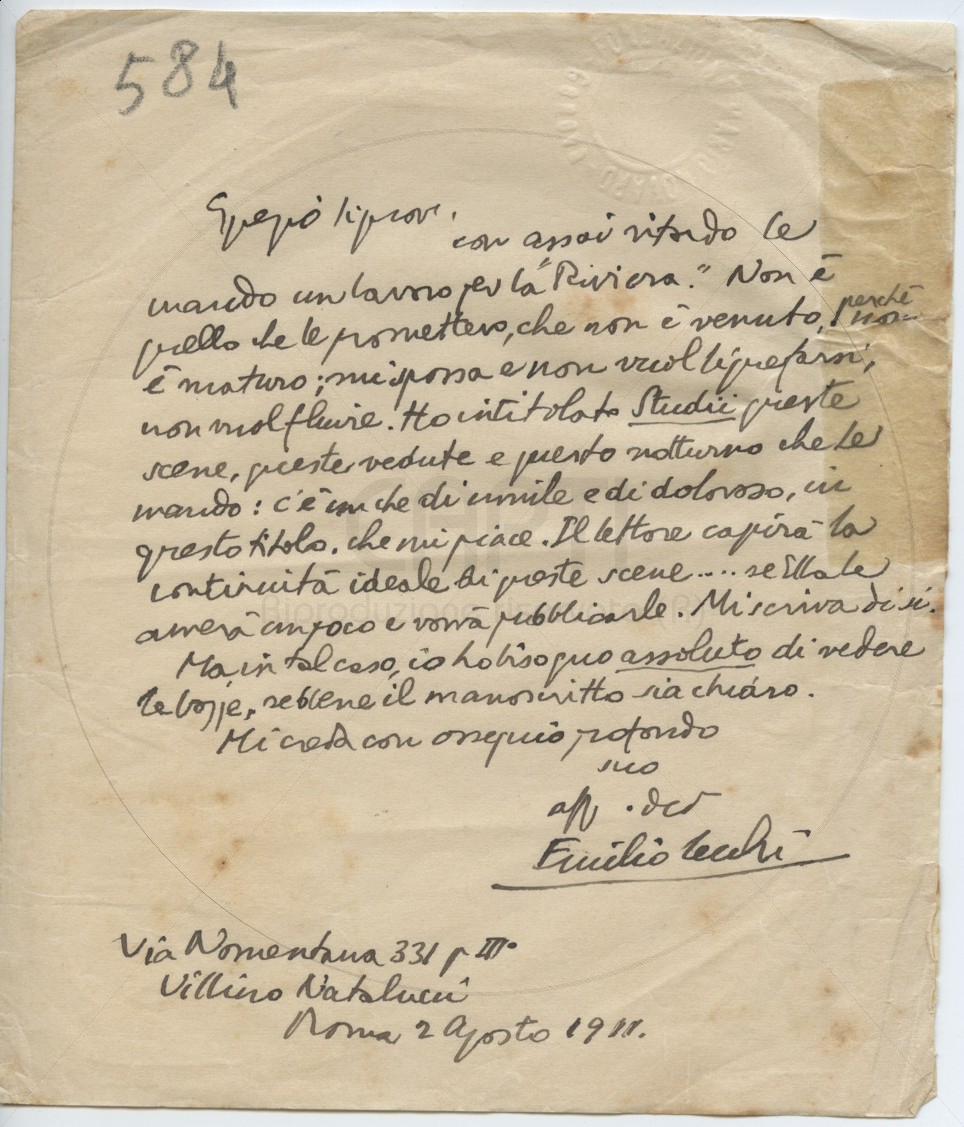 584
Egregio signore,
con assai ritardo le
mando un lavoro per la "Riviera." Non è
quello che le promettevo, che non è venuto, perchè non
è maturo; mi spossa e non vuol liquefarsi,
non vuol fluire. Ho intitolato Studii queste
scene, queste vedute e questo notturno che le
mando: c'è un che di umile e di doloroso, in
questo titolo, che mi piace. Il lettore capirà la
continuità ideale di queste scene.... se Ella le
amerà un poco e vorrà pubblicarle. Mi scriva di sì.
Ma in tal caso, io ho bisogno assoluto di vedere
le bozze, sebbene il manoscritto sia chiaro.
Mi creda con ossequio profondo
suo
aff. 
Emilio Cecchi
Via Nomentana 331 p III°
Villino Natalucci
Roma 2 Agosto 1911.